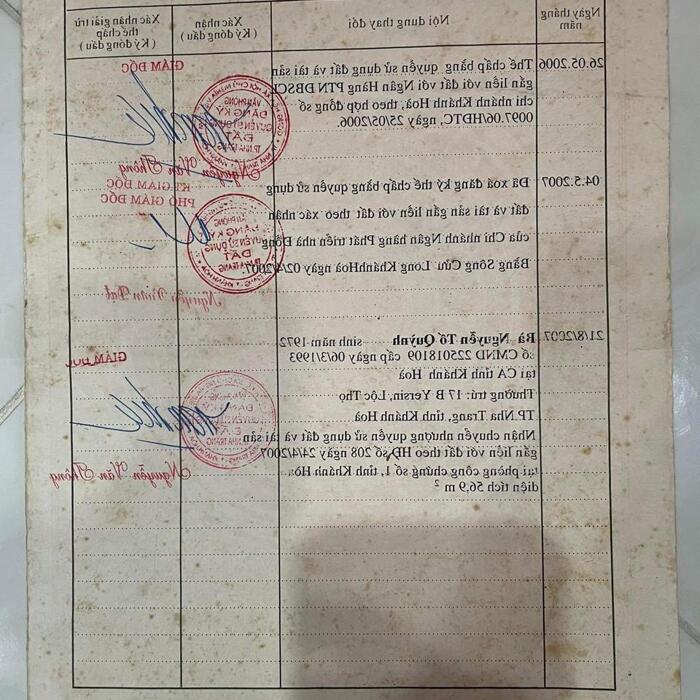 Ngày tháng năm
Nội dung thay đổi
Xác nhận
( Ký đóng dấu )
Xác nhận giải trừ thế chấp
( Ký đóng dấu )
26.05.2006
Thế chấp bằng quyền sử dụng đất và tài sản
gắn liền với đất với Ngân Hàng PTN ĐBSCL
chi nhánh Khánh Hoà, theo hợp đồng số
0097.06/HĐTC, ngày 25/05/2006.
GIÁM ĐỐC
Nguyễn Văn Thông
04.5.2007
Đã xoá đăng ký thế chấp bằng quyền sử dụng
đất và tài sản gắn liền với đất theo xác nhận
của Chi nhánh Ngân hàng Phát triển nhà Đồng
Bằng Sông Cửu Long KhánhHoà ngày 02/4/2007.
KT GIÁM ĐỐC
PHÓ GIÁM ĐỐC
Nguyễn Xuân Đạt
21/8/2007
Bà Nguyễn Tố Quỳnh sinh năm 1972
số CMND 225018109 cấp ngày 06/3/1993
tại CA tỉnh Khánh Hoà
Thường trú: 17 B Yersin, Lộc Thọ
TP Nha Trang, tỉnh Khánh Hoà
Nhận chuyển nhượng quyền sử dụng đất và tài sản
gắn liền với đất theo HĐ số 208 ngày 24/4/2007
tại phòng công chứng số 1, tỉnh Khánh Hoà
diện tích 56,9 m²
GIÁM ĐỐC
Nguyễn Văn Thông